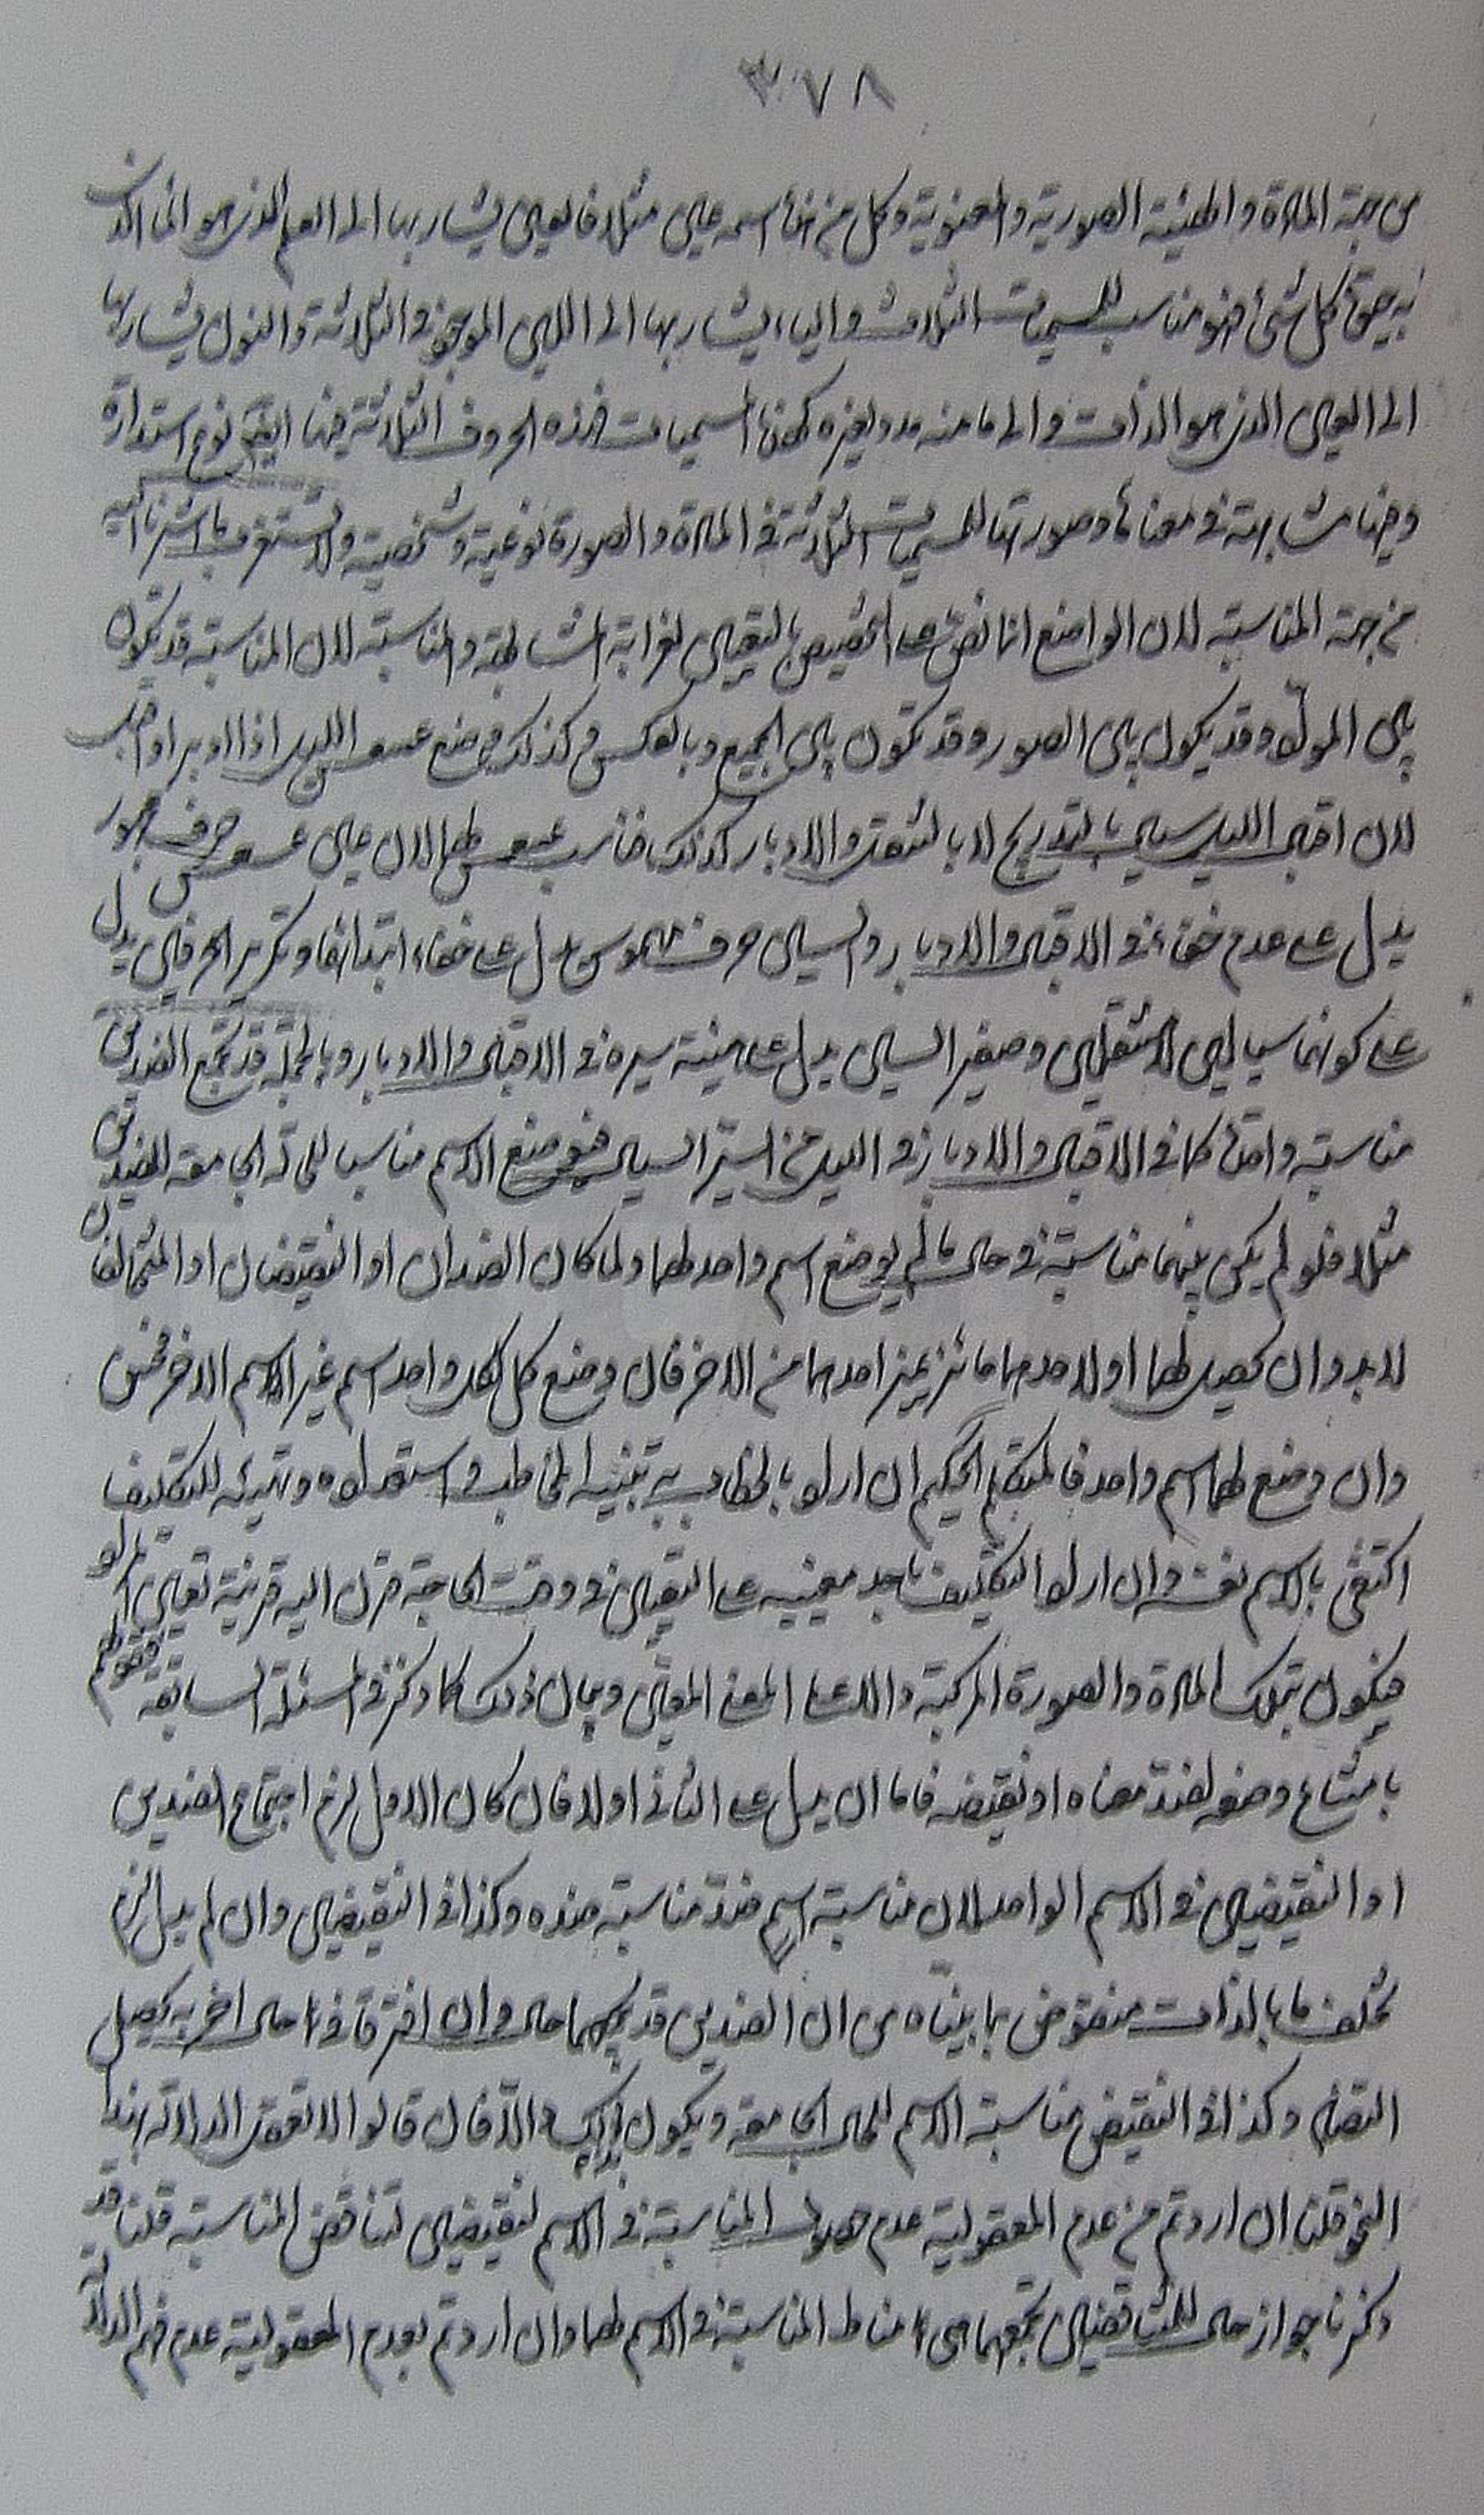 ٣٧٨
من جهة المادة و الهيئة الصورية والمعنوية وكل منها اسمه عين مثلا فالعين يشار بها الى العلم الذي هو
به حقيقة كل شئ فهو مناسب للمسميات الثلاث والياء يشار بها الى اللين الموجود في الثلاثة والنون يشار بها
الى العين الذي هو الذات والى ما منه مدد لغيره كهذه المسميات فهذه الحروف الثلاثة فيها ايضا نوع استدارة
وفيها مشابهة في معناها وصورتها للمسميات الثلاثة في المادة والصورة نوعية وشخصية ولا تستغرب ما اشرنا اليه
من جهة المناسبة لان الواضع انما نص على التخصيص بالتعيين لغرابة المشابهة والمناسبة لان المناسبة قد تكون
بين المواد وقد يكون بين الصور وقد تكون بين الجميع وبالعكس وكذلك وضع عسعس الليل اذا ادبر او اقبل
لان اقبال الليل سيال بالتدريج لا بالتنقل والادبار كذلك فناسب عسعس لهما لان عين عسعس حرف مجهور
يدل على عدم خفاء في الاقبال والادبار والسين حرف مهموس يدل على خفاء ابتدائها وتكرير الحرفين يدل
على كونهما سيالين لا متنقلين وصفير السين يدل على هيئة سيره في الاقبال والادبار وبالجملة قد تجمع الضدين
مناسبة وافقة كما في الاقبال والادبار في الليل من السير السيال فيوضع الاسم مناسبا للحالة الجامعة للضدين
مثلا فلو لم يكن بينهما مناسبة في حال ما لم يوضع اسم واحد لهما ولما كان الضدان او النقيضان او المتخالفان
لا بد وان يحصل لهما او لاحدهما مائز يميز احدهما من الاخر فان وضع كل لكل واحد اسم غير الاسم الاخر فحسن
وان وضع لهما اسم واحد فالمتكلم الحكيم ان اراد بالخطاب به تنبيه المخاطب في استعداده وتهيئه للتكليف
اكتفى بالاسم نفسه وان اراد التكليف باحد معنييه على التعيين في وقت الحاجة قرن اليه قرينة تعين المراد
فيكون بتلك المادة والصورة المركبة دالا على المعنى المعين وبيان ذلك كما ذكر في المسئلة السابقة فقولهم
بامتناع وضعه لضد معناه او نقيضه فاما ان يدل على الثاني او لا فان كان الاول لزم اجتماع الضدين
او النقيضين في الاسم الواحد لان مناسبة اسم ضد مناسبة ضده وكذا في النقيضين وان لم يدل لزم
تخلف ما بالذات منقوض بما بيناه من ان الضدين قد يجمعهما حال وان افترقا في حال اخر به يحصل
التضاد وكذا في النقيض مناسبة الاسم للحال الجامعة ويكون دالا فان قالوا لا تعقل الدلالة بهذا
النحو قلنا ان اردتم من عدم المعقولية عدم حصول المناسبة في الاسم لنقيضين لتناقض المناسبة قلنا قد
ذكرنا جواز حال للمتناقضين تجمعهما هي مناط المناسبة في الاسم لهما وان اردتم بعدم المعقولية عدم فهم الدلالة